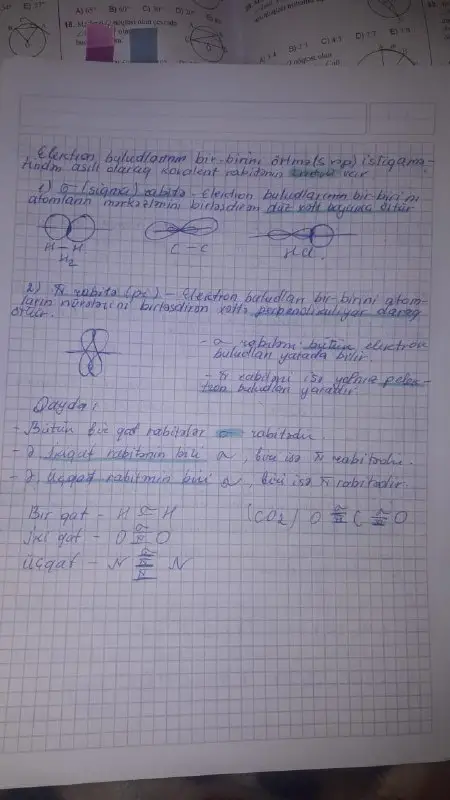 Elektron buludlarının bir-birini örtməls(s və p) istiqamə-
tindən asılı olaraq kovalent rabitənin növü var
1) σ-(sigma) rabitə - Elektron buludlarının bir-biri ni
atomların mərkəzlərini birləşdirən düz xətt boyunca örtür
H - H
H2
C - C
HCl
2) π rabitə (pi) - Elektron buludları bir-birini atom-
ların nüvələrini birləşdirən xəttə perpendikulyar olaraq
örtür.
- σ rabitəni bütün elektron
buludları yarada bilir.
- π rabitəni isə yalnız p elek-
tron buludları yaradır.
Qayda:
- Bütün bir qat rabitələr σ rabitədir.
- 2 ikiqat rabitənin biri σ, biri isə π rabitədir.
- 2 üçqat rabitnin biri σ, biri isə π rabitədir.
Bir qat - H σ H
(CO2) O σ π C σ π O
İki qat - O σ π O
Üçqat - N σ π π N